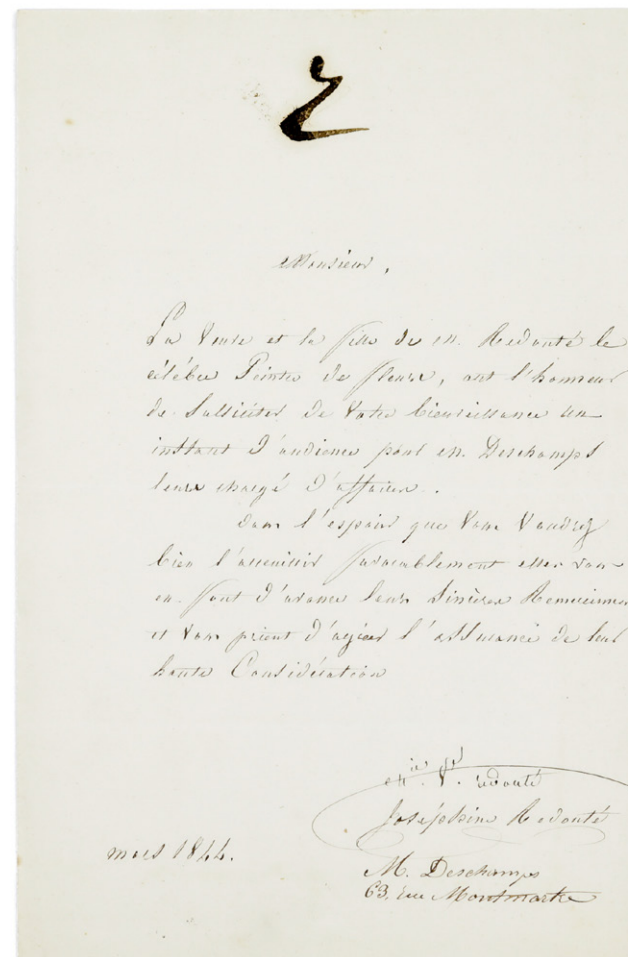 Monsieur,
La Veuve et la fille de M. Redouté le
célébre Peintre de fleurs, ont l'honneur
de Solliciter de Votre bienveillance un
instant d'audience pour M. Deschamps
leur chargé d'affaires.
Dans l'espoir que Vous Voudrez
bien l'accueillir favorablement elles vous
en font d'avance leurs Sincères
et Vous prient d'agréer l'assurance de leur
haute Considération
V. redouté
Joséphine Redouté
mars 1844.
M. Deschamps
63, rue Montmartre